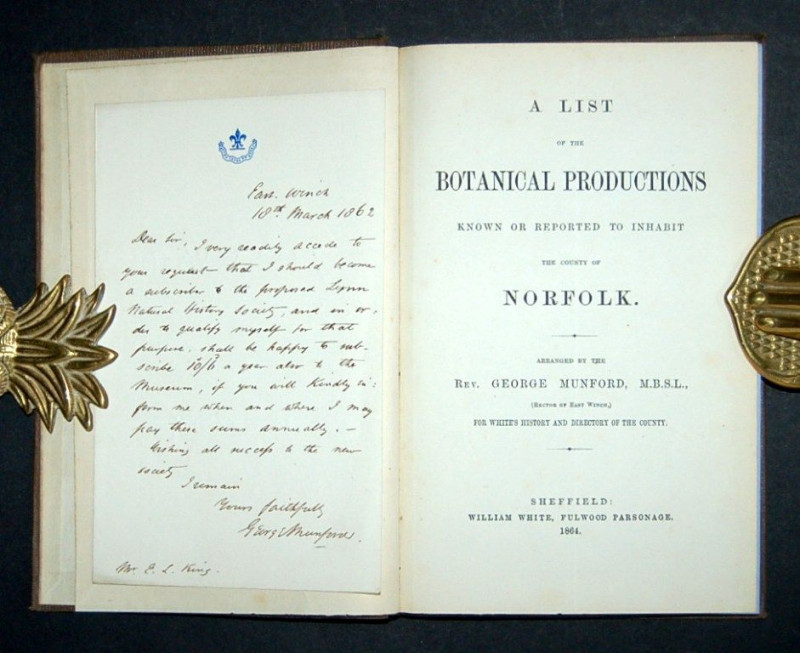 East Winch
18th March 1862
Dear Sir, I very readily accede to
your request that I should become
a subscriber to the proposed Lynn
Natural History Society, and in or-
der to qualify myself for that
purpose shall be happy to sub-
scribe 10/6 a year also to the
Museum, if you will kindly in:
form me when and where I may
pay these sums annually. –
Wishing all success to the new
society
I remain
Yours faithfully
George Munford
Mr. E. L. King.
A LIST
OF THE
BOTANICAL PRODUCTIONS
KNOWN OR REPORTED TO INHABIT
THE COUNTY OF
NORFOLK.
ARRANGED BY THE
REV. GEORGE MUNFORD, M.B.S.L.,
(RECTOR OF EAST WINCH,)
FOR WHITE'S HISTORY AND DIRECTORY OF THE COUNTY.
SHEFFIELD:
WILLIAM WHITE, FULWOOD PARSONAGE.
1864.